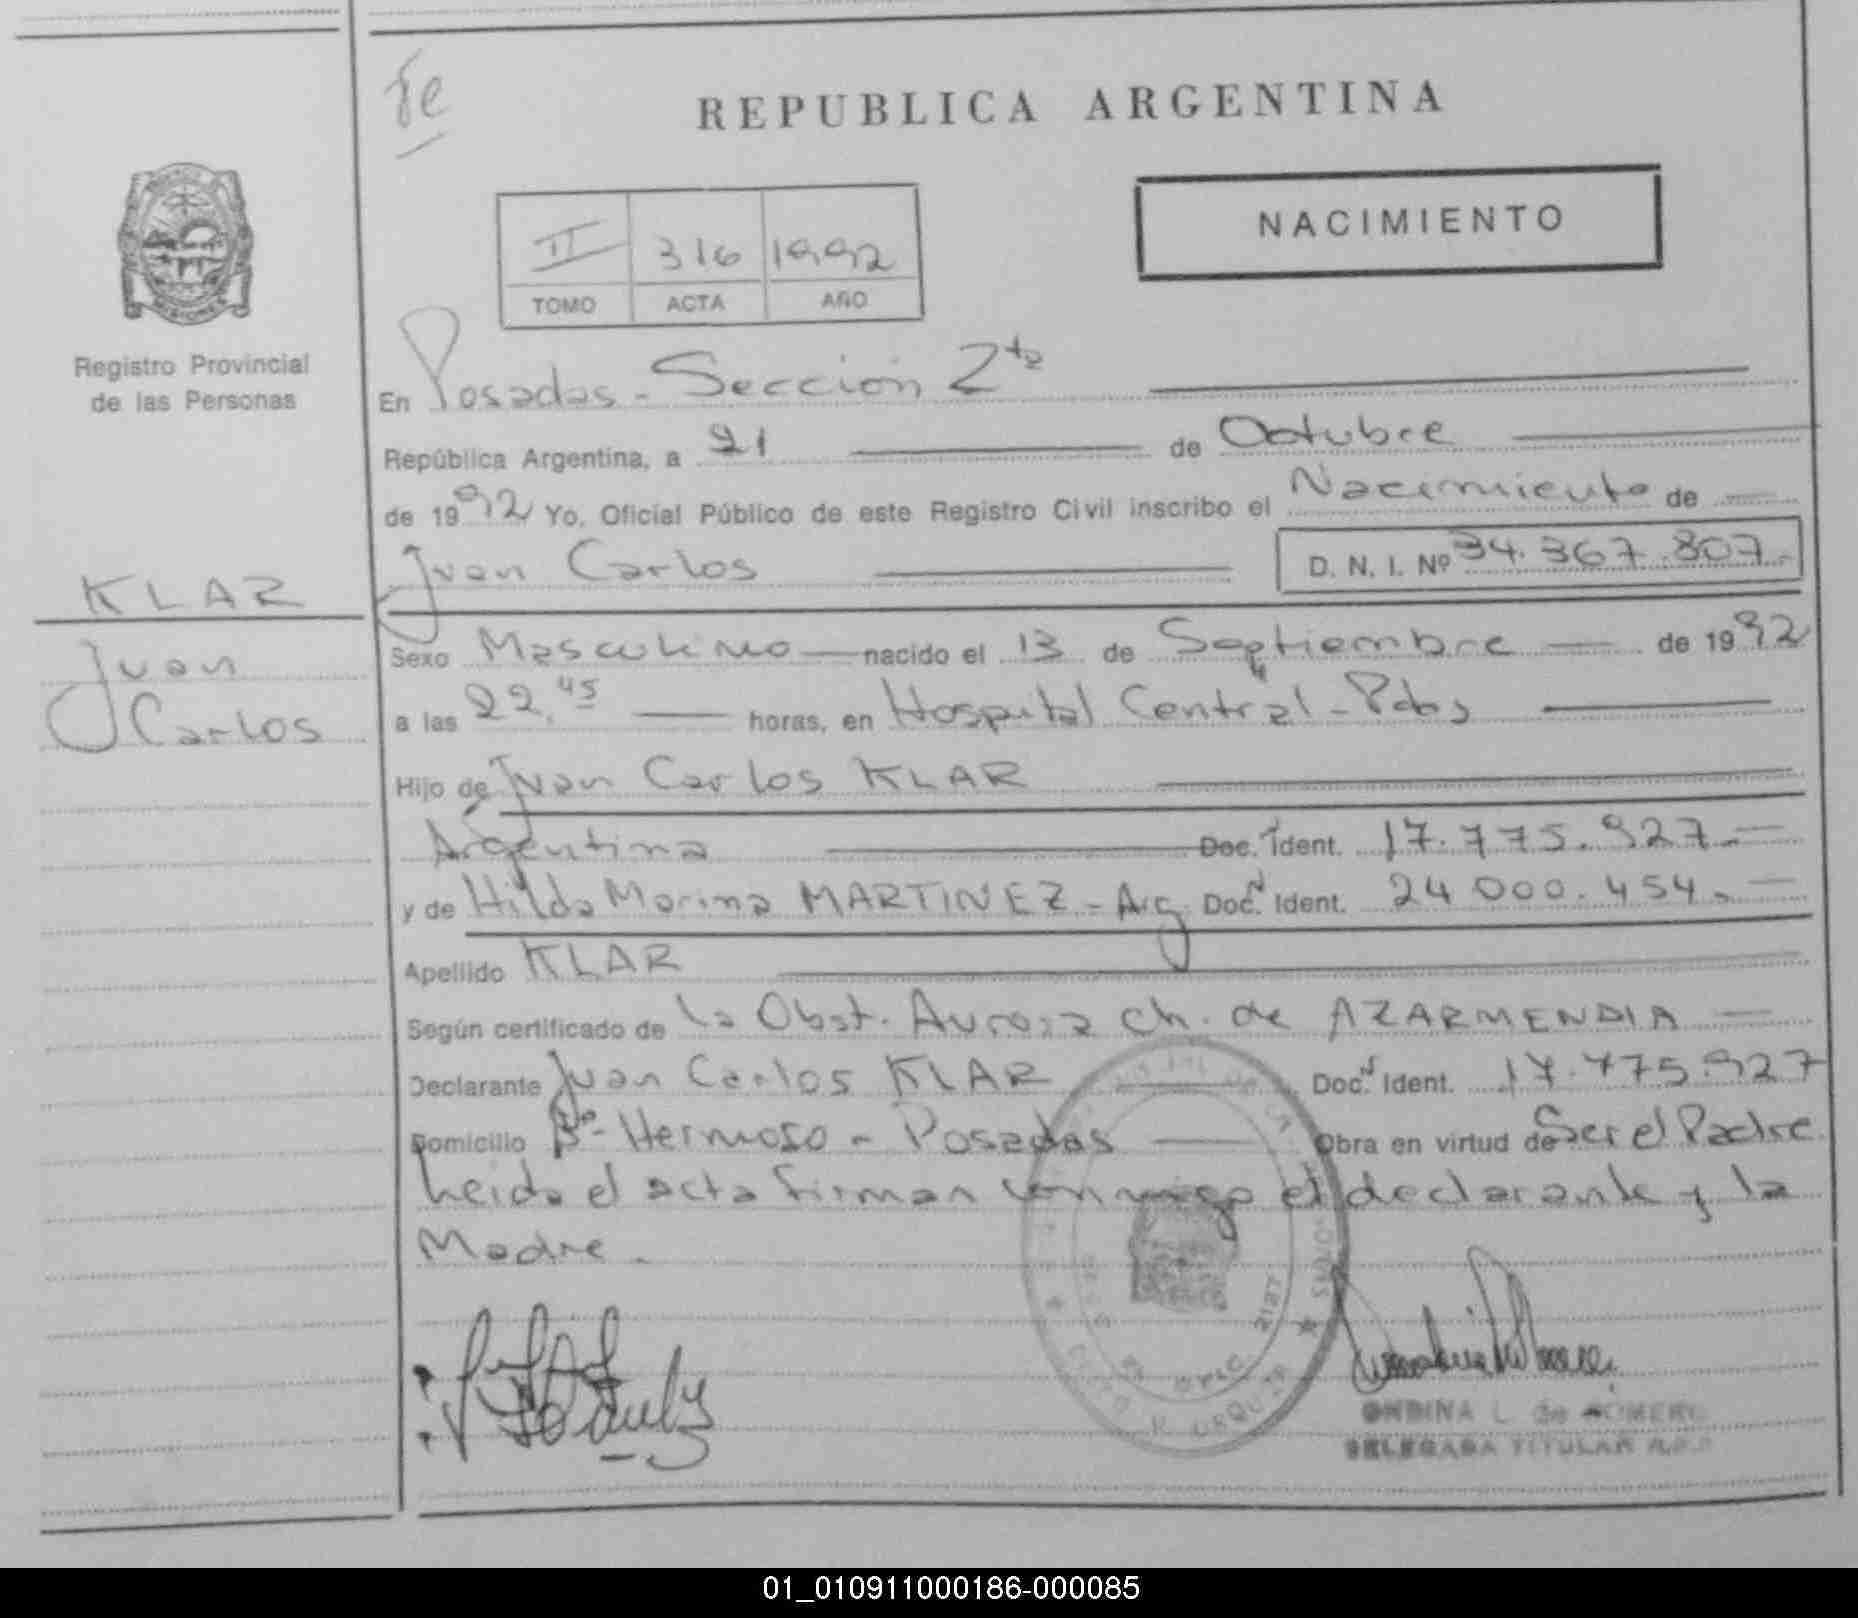 fe
REPUBLICA ARGENTINA
NACIMIENTO
II 316 1992
TOMO ACTA AÑO
MISIONES
Registro Provincial
de las Personas
KLAR
Juan
Carlos
En Posadas - Sección 7ta
República Argentina, a 21 de Octubre
de 1992 Yo, Oficial Público de este Registro Civil inscribo el Nacimiento de
Juan Carlos D. N. I. Nº 34.367.807.-
Sexo Masculino nacido el 13 de Septiembre de 1992
a las 22,45 horas, en Hospital Central - Pdas
Hijo de Juan Carlos KLAR
Argentina Doc. Ident. 17.775.927.-
y de Hilda Marina MARTINEZ - Arg. Doc. Ident. 24 000.454.-
Apellido KLAR
Según certificado de la Obst. Aurora ch. de AZARMENDIA
Declarante Juan Carlos KLAR Doc. Ident. 17.775.927
Domicilio Bº - Hermoso - Posadas Obra en virtud de Ser el Padre
Leida el acta firman conmigo el declarante y la
Madre.
ONDINA L. de ROMERO
DELEGADA TITULAR R.P.P
01_010911000186-000085